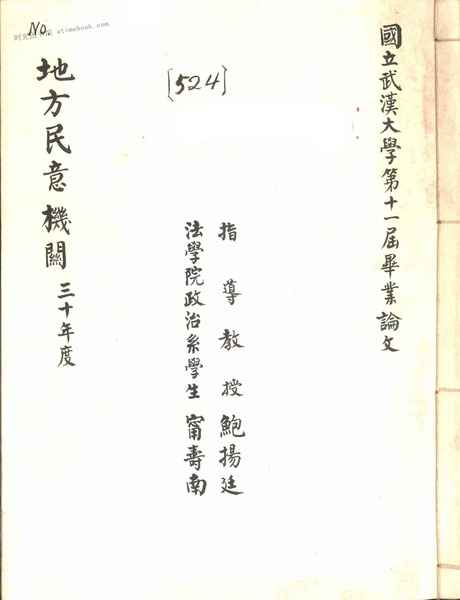 國立武漢大學第十一屆畢業論文
指導教授 鮑揚廷
法學院政治系學生 甯壽南
[524]
地方民意機關 三十年度
No.